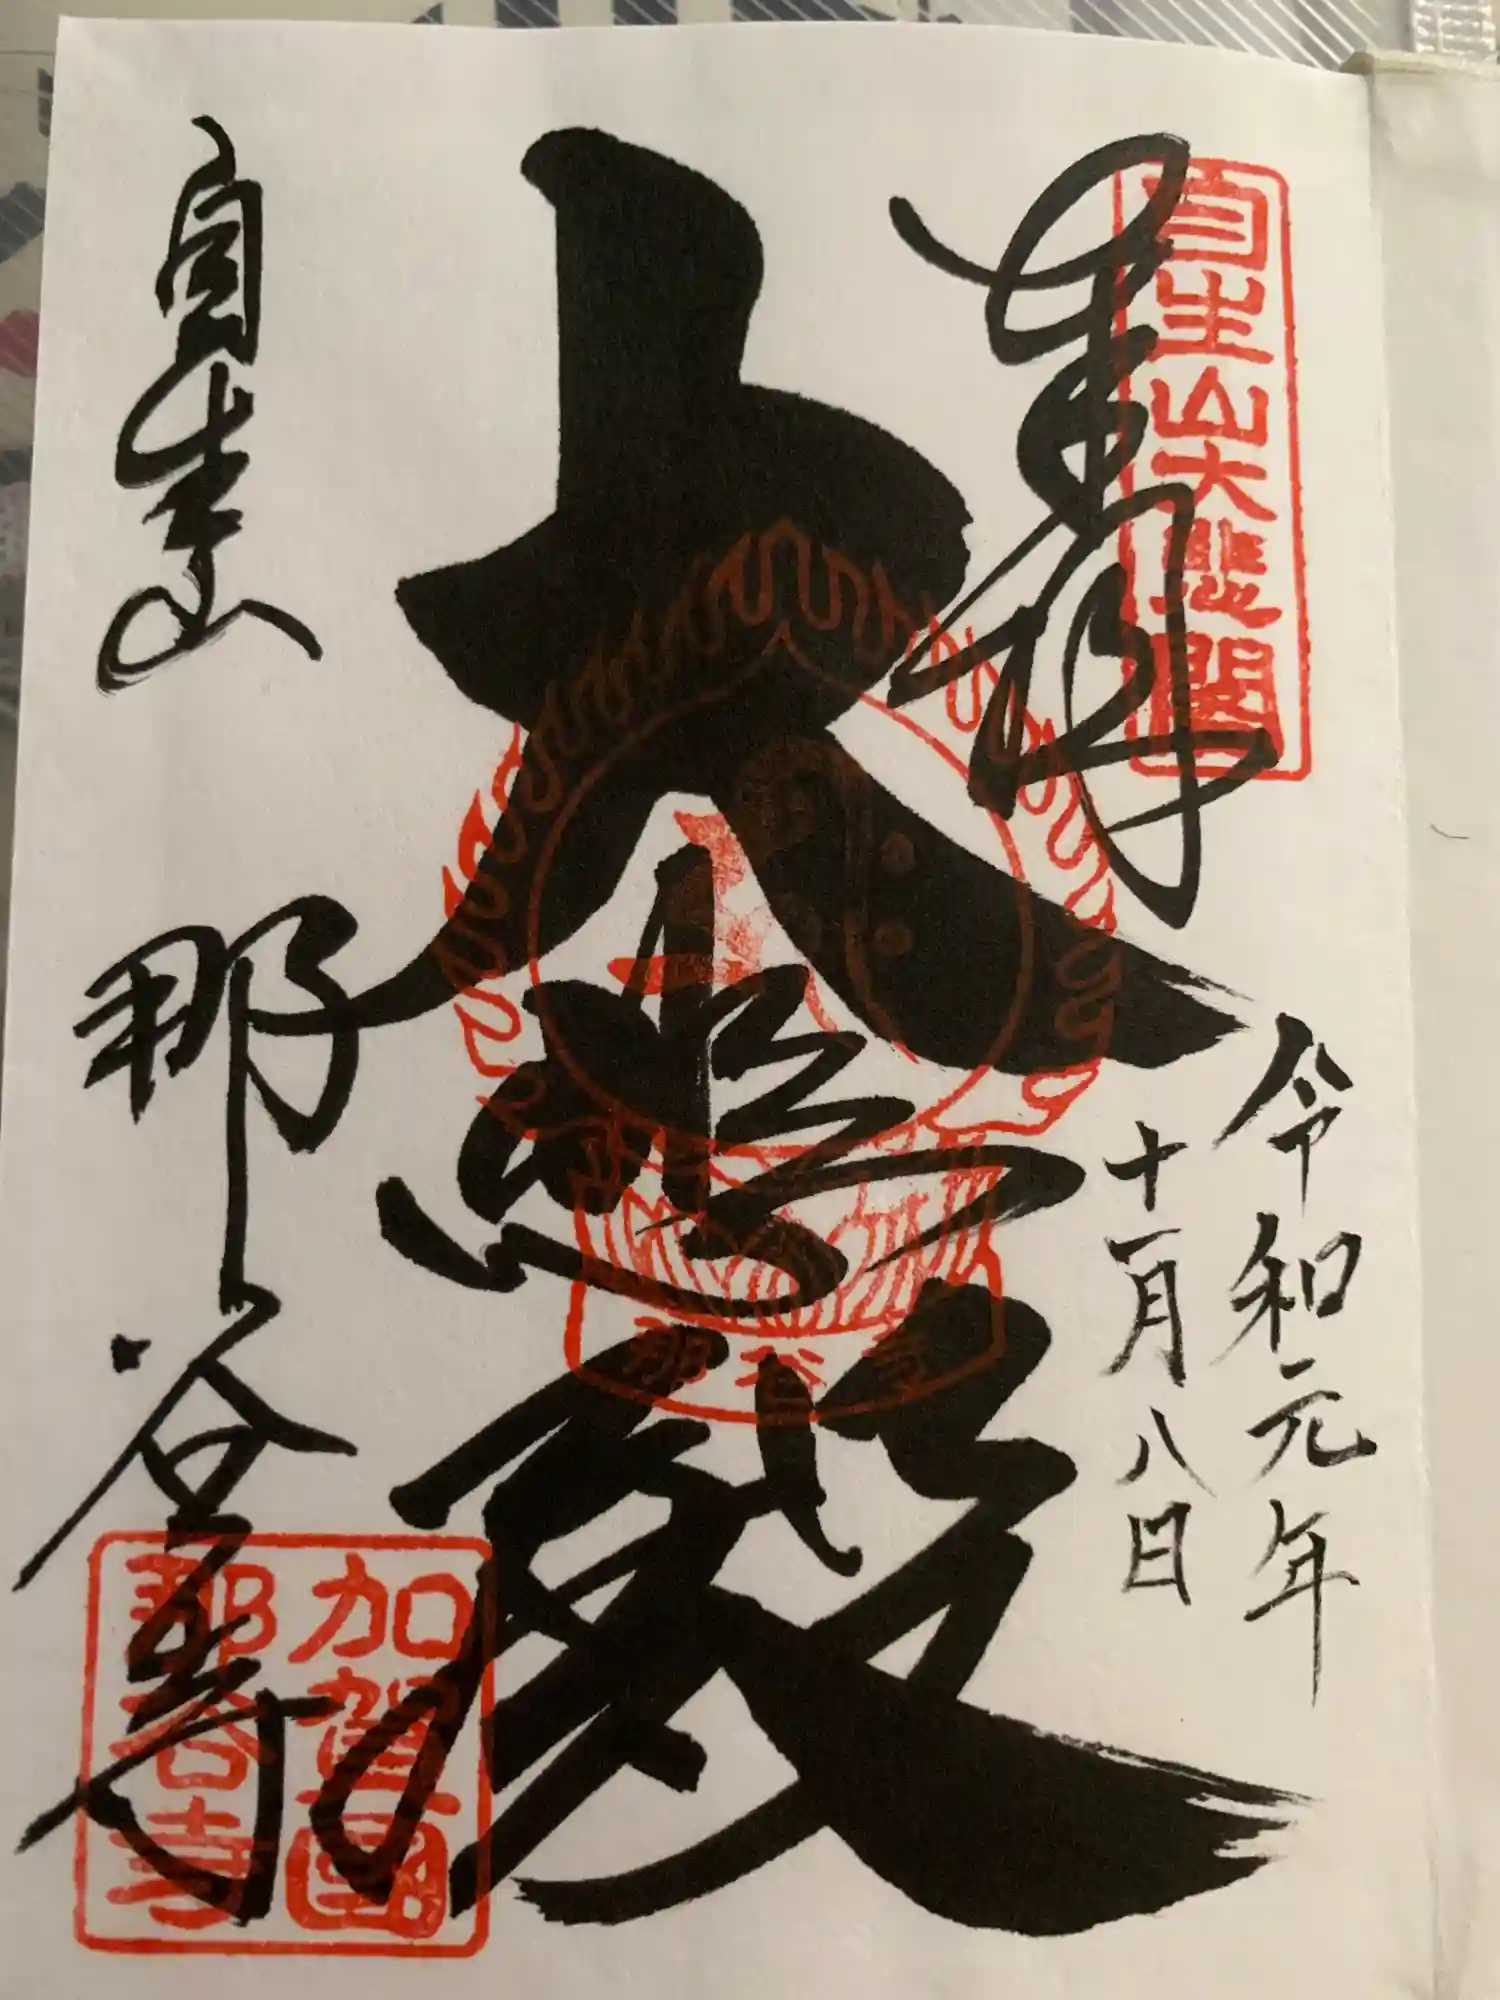 自生山大悲閣
奉拝
令和元年
十一月八日
大悲殿
那谷寺
自生山
那谷寺
加賀國
那谷寺